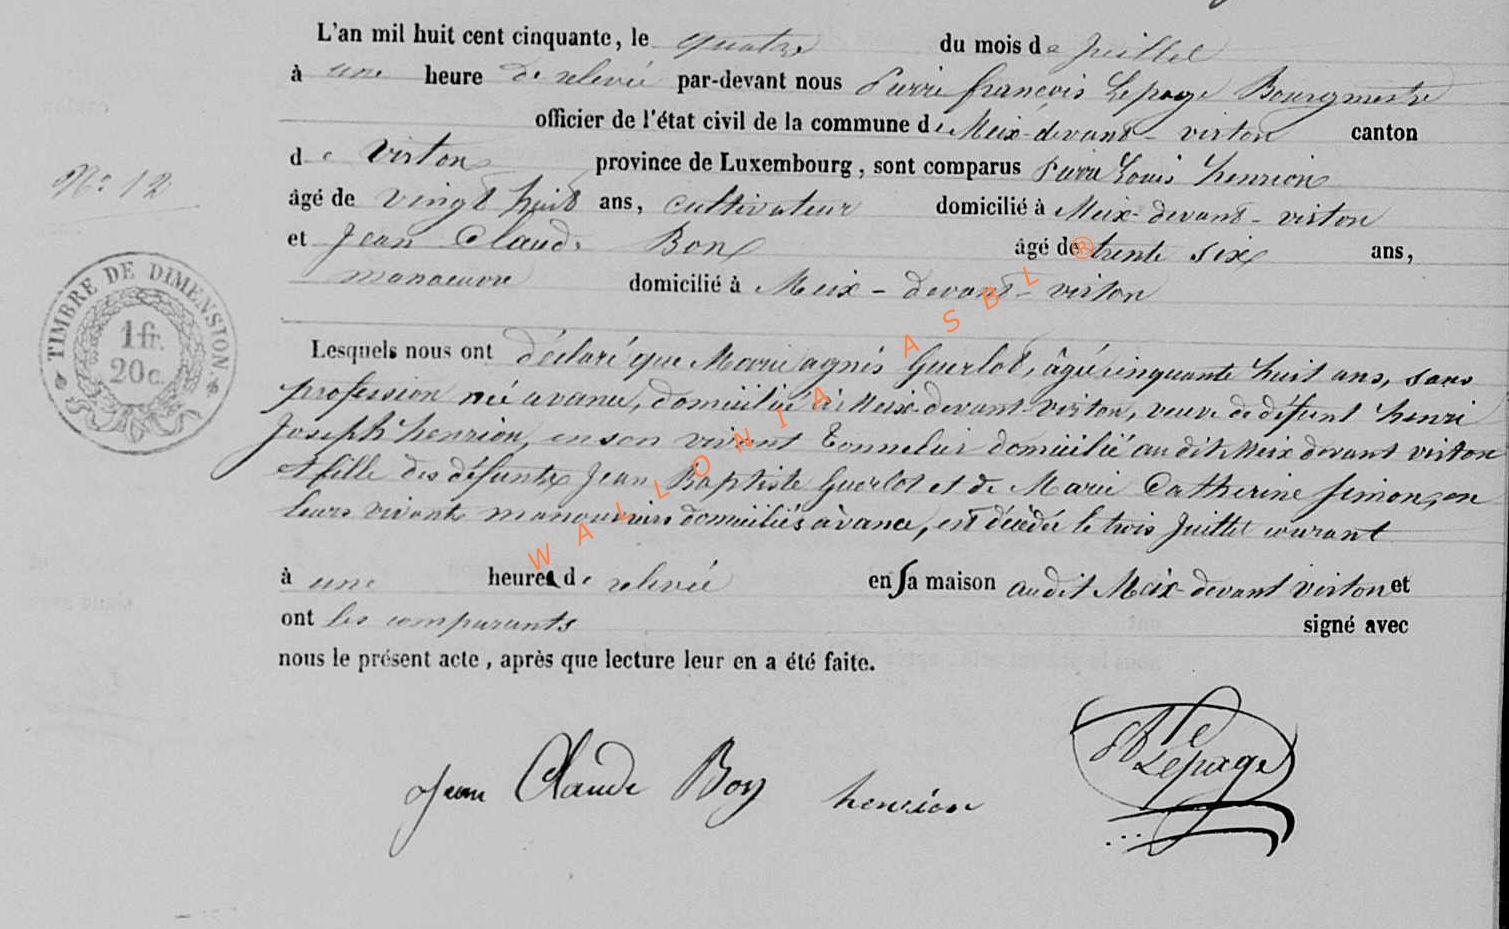 L'an mil huit cent cinquante, le quatre du mois de Juillet
à une heure de relevée par-devant nous Pierre françois Lepage Bourgmestre
officier de l'état civil de la commune de Meix-devant-virton canton
de virton province de Luxembourg, sont comparus Pierre Louis henrion
N° 12
âgé de vingt huit ans, cultivateur domicilié à Meix-devant-virton
et Jean Claude Bon âgé de trente six ans,
manoeuvre domicilié à Meix-devant-virton
TIMBRE DE DIMENSION
1 fr.
20 c.
Lesquels nous ont déclaré que Marie agnés Guerlot, âgée cinquante huit ans, sans
profession née avance, domiciliée à Meix-devant-virton, veuve de défunt henri
Joseph henrion, en son vivant Tonnelier domicilié au dit Meix devant virton
et fille des défunts Jean Baptiste Guerlot et de Marie Catherine Simon, en
leurs vivants manouvriers domiciliés àvance, est décédée le trois Juillet courant
à une heure de relevée en sa maison audit Meix-devant virton et
ont les comparants signé avec
nous le présent acte, après que lecture leur en a été faite.
Jean Claude Bon henrion Lepage
WALLONIA ASBL ®